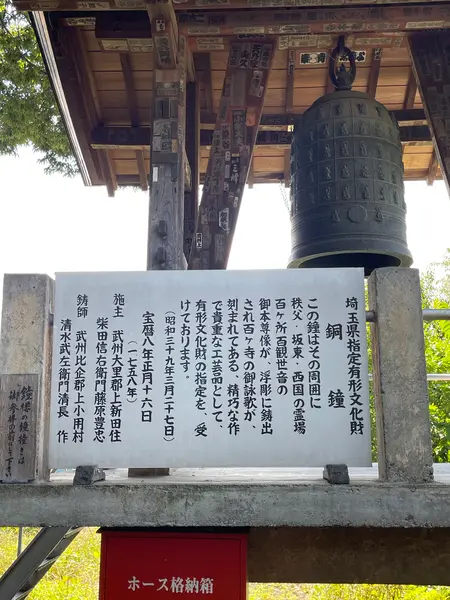 埼玉県指定有形文化財
銅鐘
この鐘はその周囲に
秩父・坂東・西国の霊場
百ヶ所百観世音の
御本尊像が、浮彫に鋳出
され百ヶ寺の御詠歌が、
刻まれてある。精巧な作
で貴重な工芸品として、
有形文化財の指定を、受
けております。
（昭和三十九年三月二十七日）
宝暦八年正月十六日
（一七五八年）
施主 武州大里郡上新田住
柴田信右衛門藤原豊忠
鋳師 武州比企郡上小用村
清水武左衛門清長 作
ホース格納箱